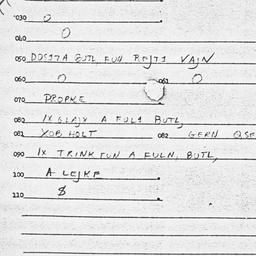 030 0
040 0
050 DOSITA BUTL FUN REJTS VAJN
060 0 061 0
070 PROPKE
080 IX GLAJX A FULS BUTL,
081 XOB HOLT 082 GERN QSE
090 IX TRINK FUN A FULN, BUTL,
100 A LEJKE
110 $